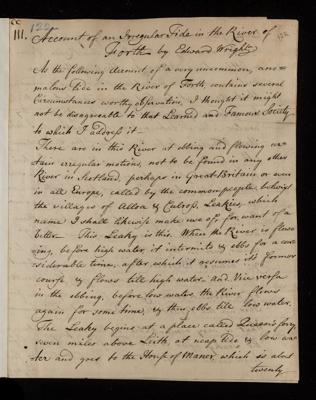 III.
Account of an Irregular Tide in the River of
Forth by Edward Wright
As the following Account of a very uncommon, ano-
malous Tide in the River of Forth, contains several
Circumstances worthy observation, I thought it might
not be disagreeable to that Learned and Famous Society
to which I address it
There are in this River at ebbing and flowing cer-
tain irregular motions, not to be found in any other
River in Scotland, perhaps in Great Britain or even
in all Europe, called by the common people, betwixt
the villages of Alloa & Culross, Leakies, which
name I shall likewise make use of, for want of a
better. This Leaky is this. When the River is flow-
ing, before high water, it intermits & ebbs for a con-
siderable time, after which it assumes its former
course & flows till high water. and Vice versa
in the ebbing, before low water, the River flows
again for some time, & then ebbs till low water.
The Leaky begins at a place called Queens ferry
seven miles above Leith, at neap tide & low wa-
ter and goes to the House of Maner, which is about
twenty